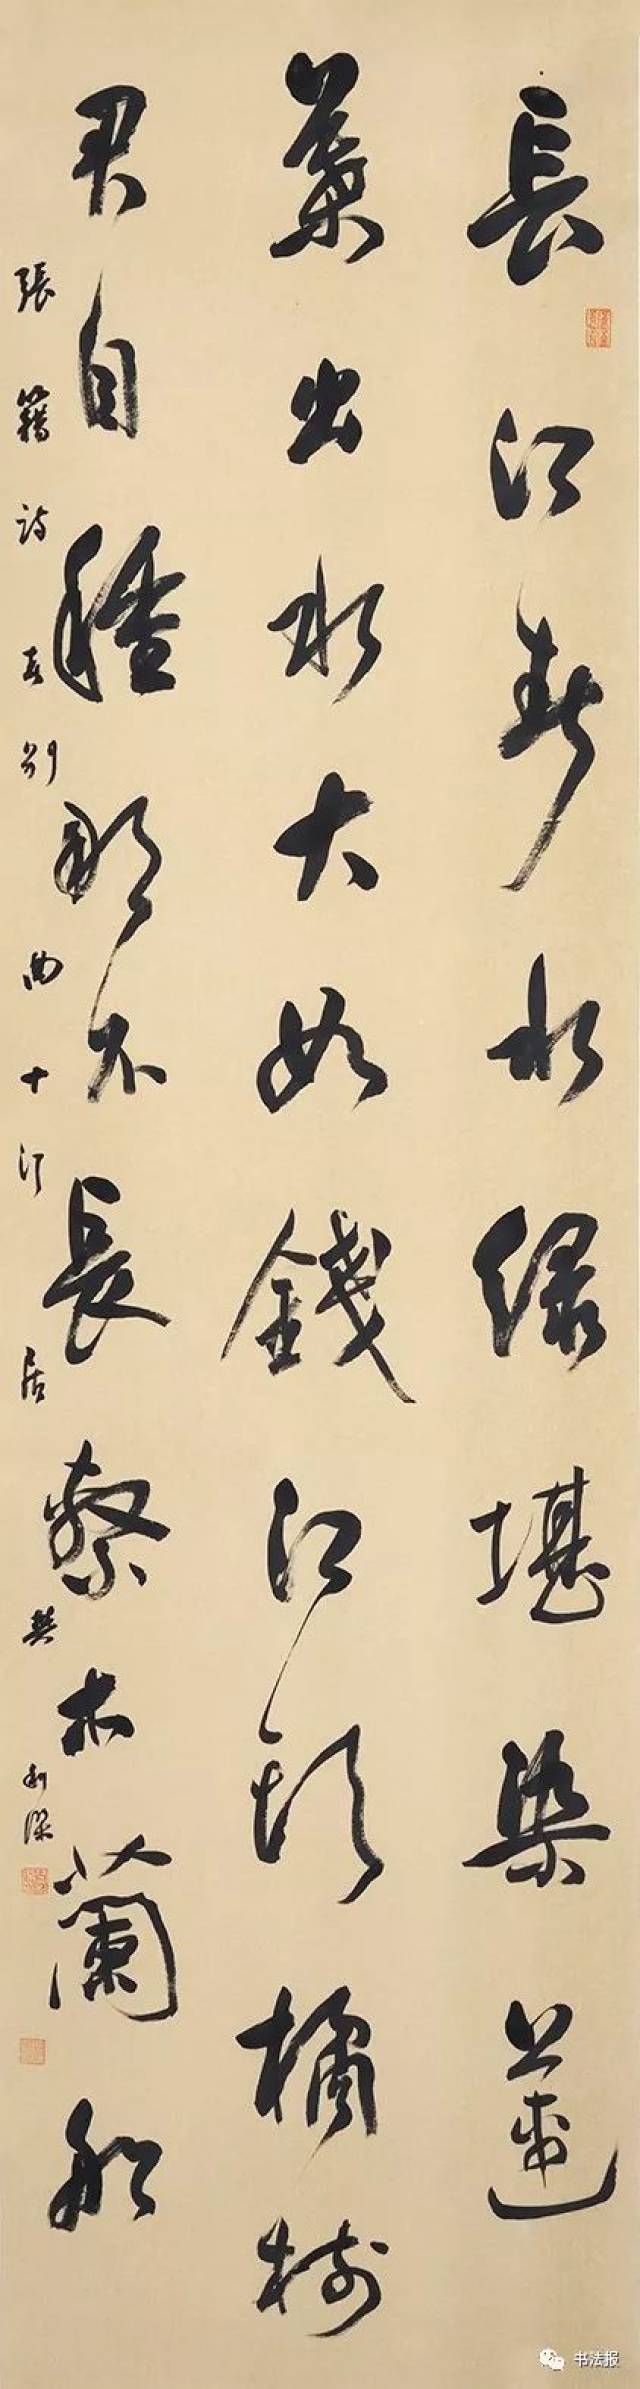 長江春水綠堪染蓮
葉出水大如錢江頭橘樹
君自種那不長繫木蘭船
張籍詩春別曲十汀居樊利傑
书法报